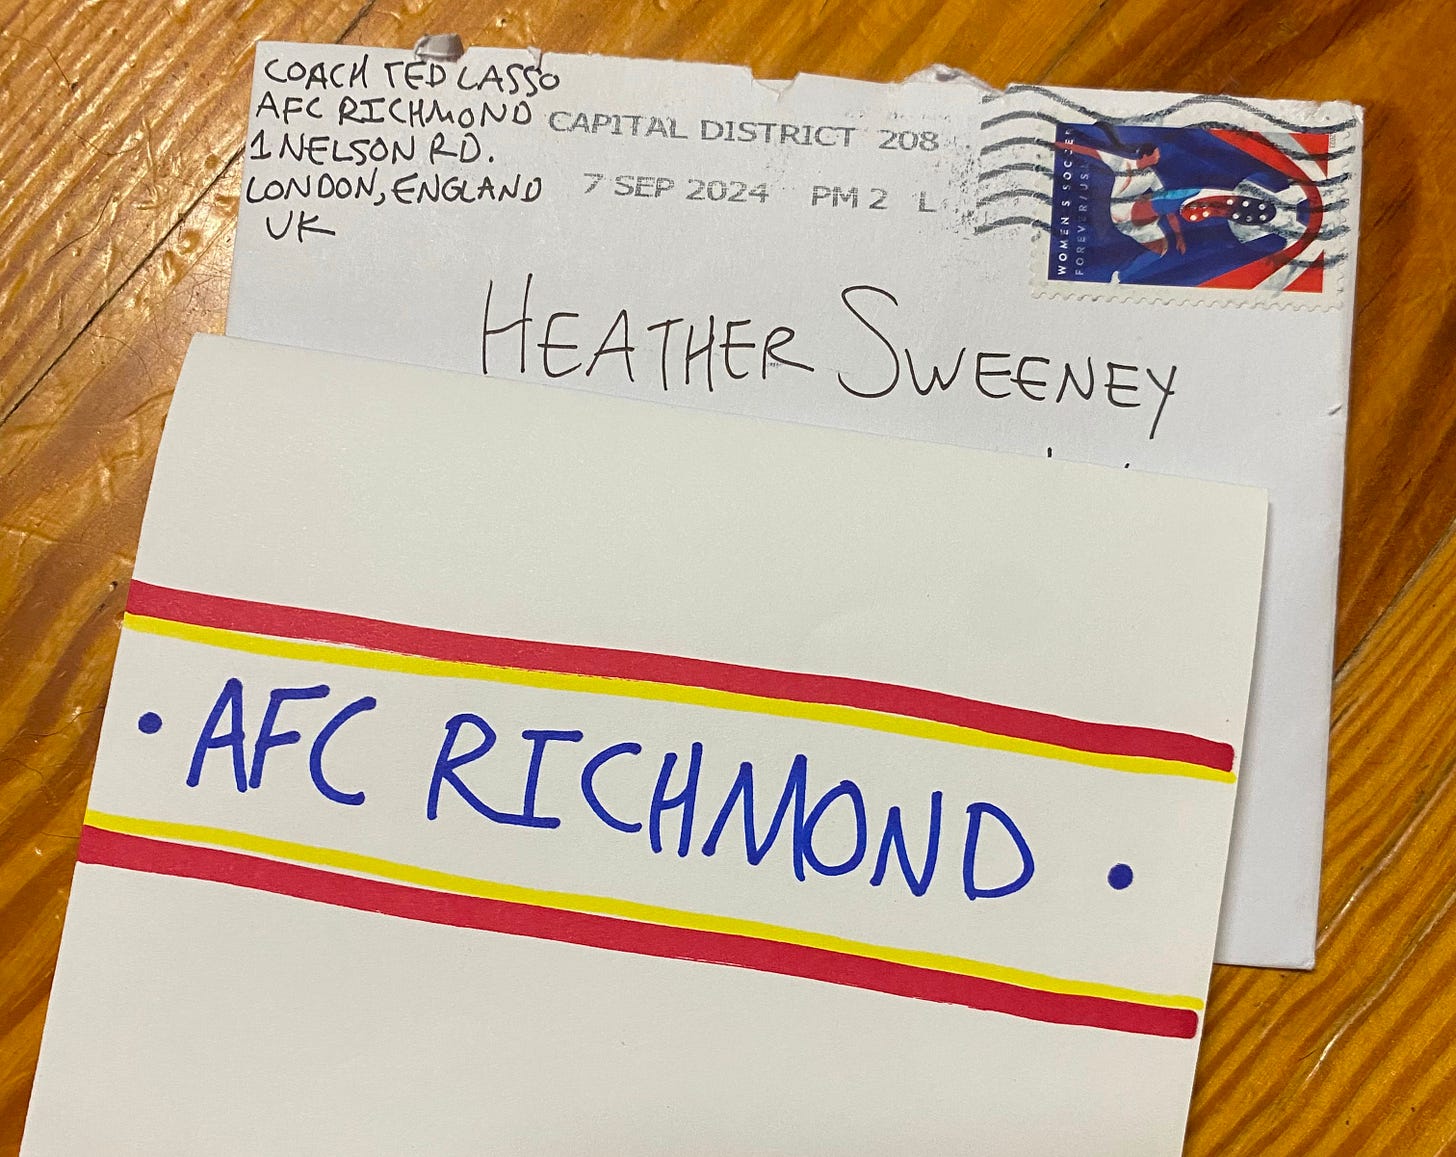 COACH TED LASSO
AFC RICHMOND
1 NELSON RD.
LONDON, ENGLAND
UK
CAPITAL DISTRICT 208
7 SEP 2024 PM 2 L
WOMEN'S SOCCER
FOREVER/USA
HEATHER SWEENEY
• AFC RICHMOND •